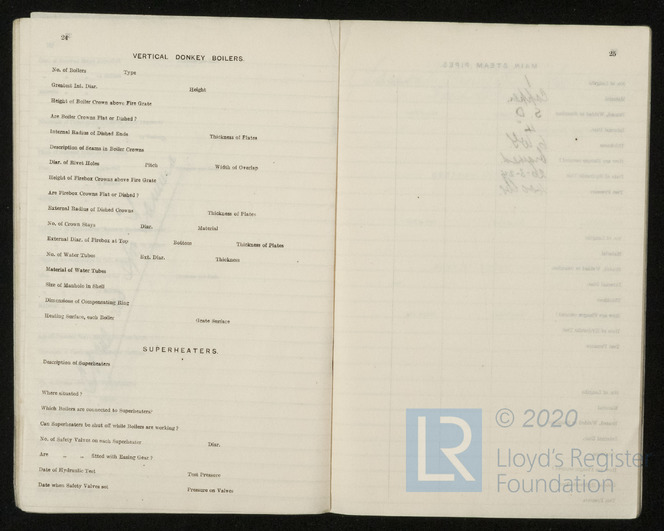 24
VERTICAL DONKEY BOILERS.
No. of Boilers Type
Greatest Int. Diar. Height
Height of Boiler Crown above Fire Grate
Are Boiler Crowns Flat or Dished?
Internal Radius of Dished Ends Thickness of Plates
Description of Seams in Boiler Crowns
Diar. of Rivet Holes Pitch Width of Overlap
Height of Firebox Crowns above Fire Grate
Are Firebox Crowns Flat or Dished?
External Radius of Dished Crowns Thickness of Plates
No. of Crown Stays Diar. Material
External Diar. of Firebox at Top Bottom Thickness of Plates
No. of Water Tubes Ext. Diar. Thickness
Material of Water Tubes
Size of Manhole in Shell
Dimensions of Compensating Ring
Heating Surface, each Boiler Grate Surface
SUPERHEATERS.
Description of Superheaters
Where situated?
Which Boilers are connected to Superheaters?
Can Superheaters be shut off while Boilers are working?
No. of Safety Valves on each Superheater Diar.
Are " " fitted with Easing Gear?
Date of Hydraulic Test Test Pressure
Date when Safety Valves set Pressure on Valves
25
LR
© 2020
Lloyd's Register
Foundation